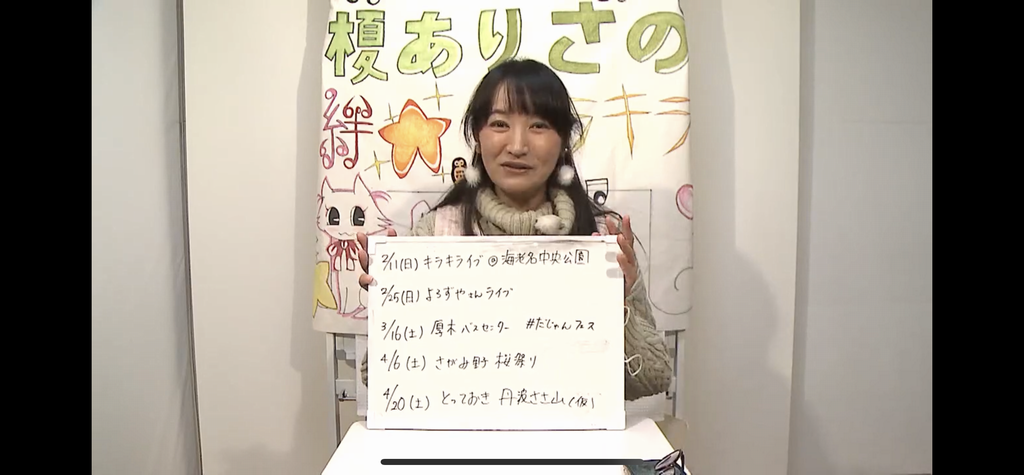 榎ありさの
絆★キラキラ
2/11(日) キラキライブ@海老名中央公園
2/25(日) よろずやさんライブ
3/16(土) 厚木バスセンター #だじゃんフェス
4/6(土) さがみ野 桜祭り
4/20(土) とっておき 丹波ささ山(仮)